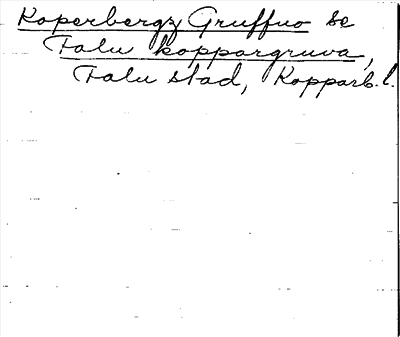 Koperbergz Gruffuo se
Falu koppargruva,
Falu stad, Kopparb. l.